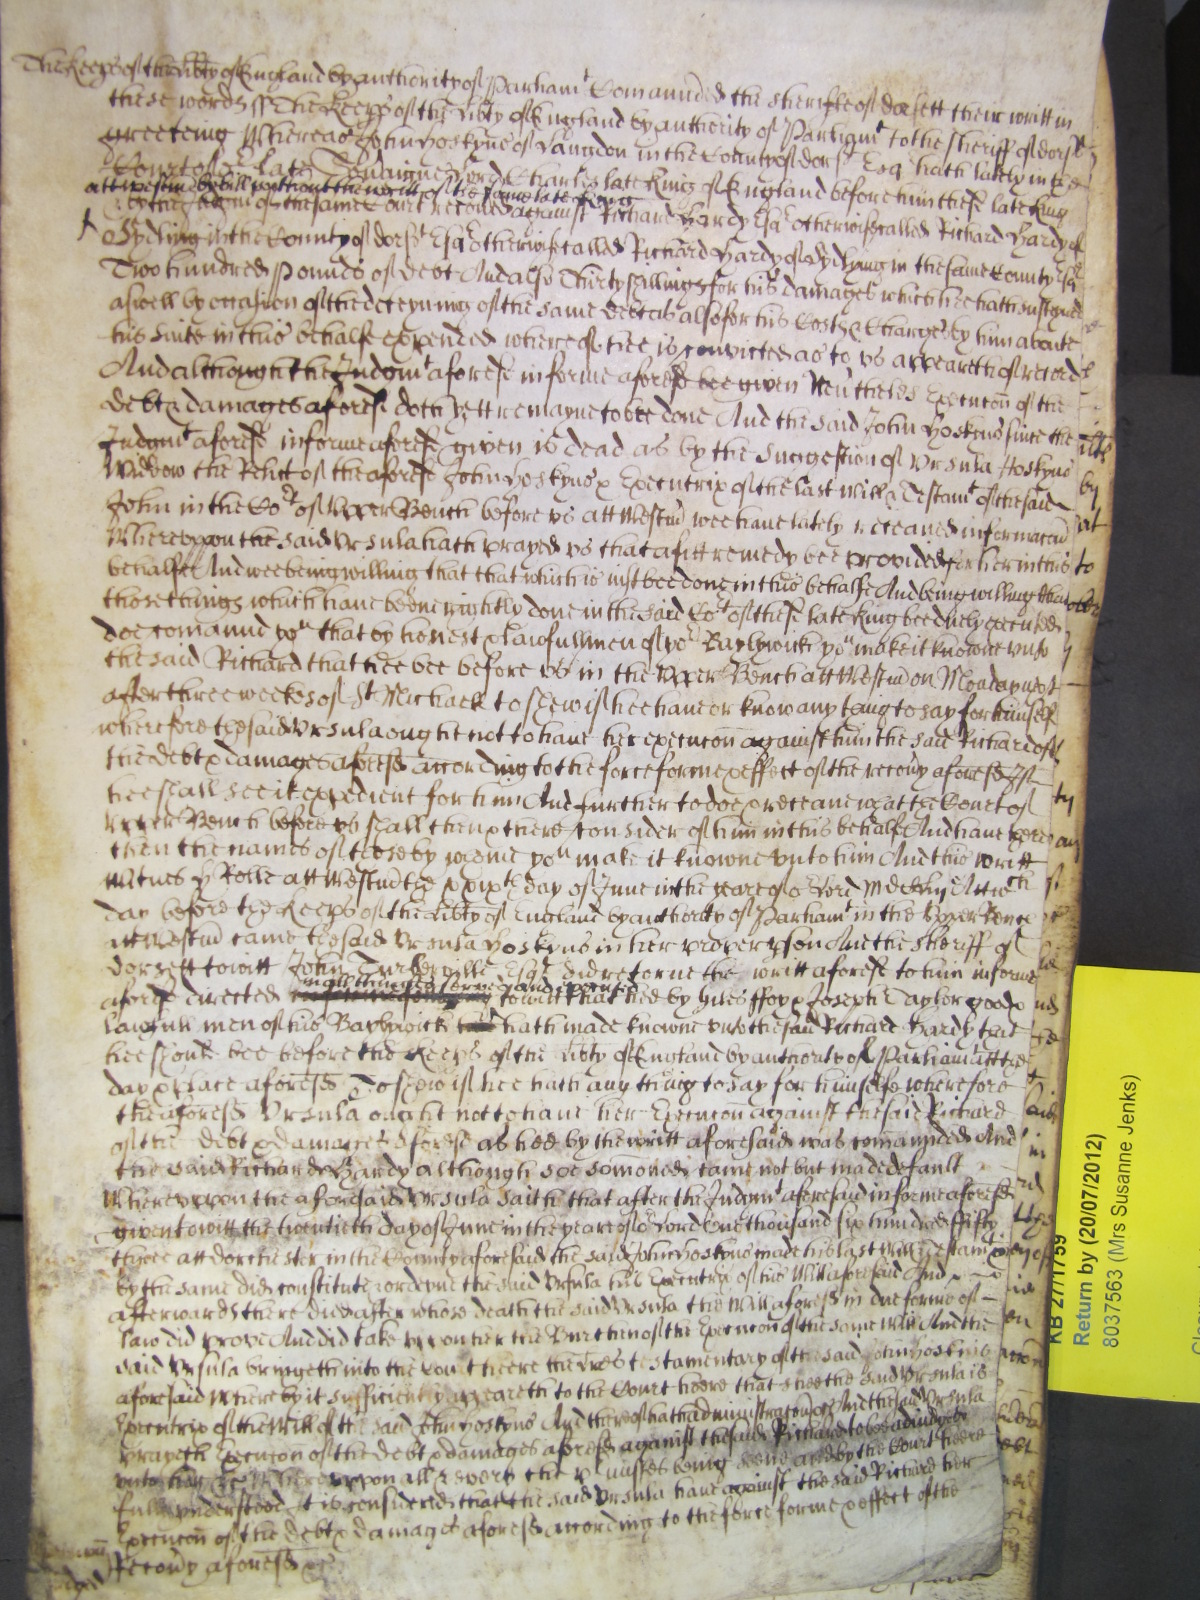 The keeps of the libty of England by authority of Parliamt Comaunded the Sheriffe of dorsett their writt in
these words ss The keeps of the libty of England by authority of Parliamt to the Sheriff of dorsett
greeteing Whereas John Hoskyns of Langdon in the County of dorst Esq hath lately in the
Court of late Charles late King of England before him the late King
att Westm by bill without the writt of the same late King
by the Judgmt of the same Court recoued against Richard Hardy Esq otherwise called Richard Hardy of
Sydling in the County of dorst Esq otherwise called Richard Hardy of Sydling in the same County Esq
Two hundred Pounds of debt And also Thirty shillings for his damages which hee hath susteyned
aswell by occasion of the deteyning of the same debt as also for his Costs & Charges by him aboute
his suite in this behalfe expended whereof hee is convicted as to vs appeareth of record
And although the Judgmt aforesd in forme aforesd bee given Neuthelesse Execucon of the
debt & damages aforesd doth yett remayne to bee done And the said John Hoskyns since the
Judgmt aforesd in forme aforesd given is dead as by the suggestion of Vrsula Hoskyns
Widdow the Relict of the aforesd John Hoskyns & Executrix of the last Will & Testamt of the said
John in the Cort of Vpper Bench before vs att Westm wee haue lately receaued informacon
Wherevpon the said Vrsula hath prayed vs that a fitt remedy bee provided for her in this
behalfe And wee being willing that that which is iust bee done in this behalfe And being willing that
those things which haue beene rightly done in the said Cort of the late King bee duely executed
doe comaund you that by honest & lawfull men of yor Baylywick you make it knowne vnto
the said Richard that hee bee before vs in the Vpper Bench att Westm on Monday next
after three weekes of St Michaell to shew if hee haue or know any thing to say for himself
wherefore the said Vrsula ought not to haue her execucon against him the said Richard of
the debt & damages aforesd according to the force forme & effect of the recouy aforesd If
hee shall see it expedient for him And further to doe & receaue what the Court of
Vpper Bench before vs shall then & there consider of him in this behalf And haue there
then the names of those by whome you make it knowne vnto him And this writt
Witnes H Rolle att Westm the xxixth day of June in the yeare of or Lord Att wch
day before the Keeps of the libty of England by authority of Parliamt in the Vpper Bench
att Westm came the said Vrsula Hoskyns in her proper pson And the Sheriff of
dorsett towitt John Turberville Esqr did retorne the writt aforesd to him in forme
in all things served and executed
aforesd directed towitt that hee by Giles ffoy & Joseph Taylor good &
lawfull men of his Baylywick hath made knowne vnto the said Richard Hardy that
hee should bee before the Keeps of the libty of England by authority of Parliamt att the
day & place aforesd To shew if hee hath any thing to say for himselfe wherefore
the aforesd Vrsula ought not to haue her Execucon against the said Richard
of the debt & damages aforesd as hee by the writt aforesaid was comaunded And
the said Richard Hardy although soe somoned came not but made default
Wherevppon the aforesaid Vrsula saith that after the Judgmt aforesaid in forme aforesd
given towitt the twentieth day of June in the yeare of or Lord One thousand six hundred fifty
three att dorchester in the County aforesaid the said John Hoskyns made his last Will & Testamt & therof
by the same did constitute & ordeyne the said Vrsula his Executrix of his Will aforesaid And
afterwards there died after whose death the said Vrsula the Will aforesd in due forme of
law did prove And did take vppon her the Burthen of the Execucon of the same Will And the
said Vrsula bringeth into the Court heere the tres testamentary of the said John Hoskins
aforesaid Whereby it sufficiently appeareth to the Court heere that shee the said Vrsula is
Executrix of the Will of the said John Hoskyns And thereof hath administracon &c And the said Vrsula
prayeth Execucon of the debt & damages aforesd against the said Richard to bee adiudged
vnto her &c Wherevppon all & every the pmisses being seene and by the Court heere
fully vnderstood It is considered that the said Vrsula haue against the said Richard her
Execucon of the debt & damages aforesd according to the force forme & effect of the
Recouy aforesd &c
KB 27/1759
Return by (20/07/2012)
8037563 (Mrs Susanne Jenks)